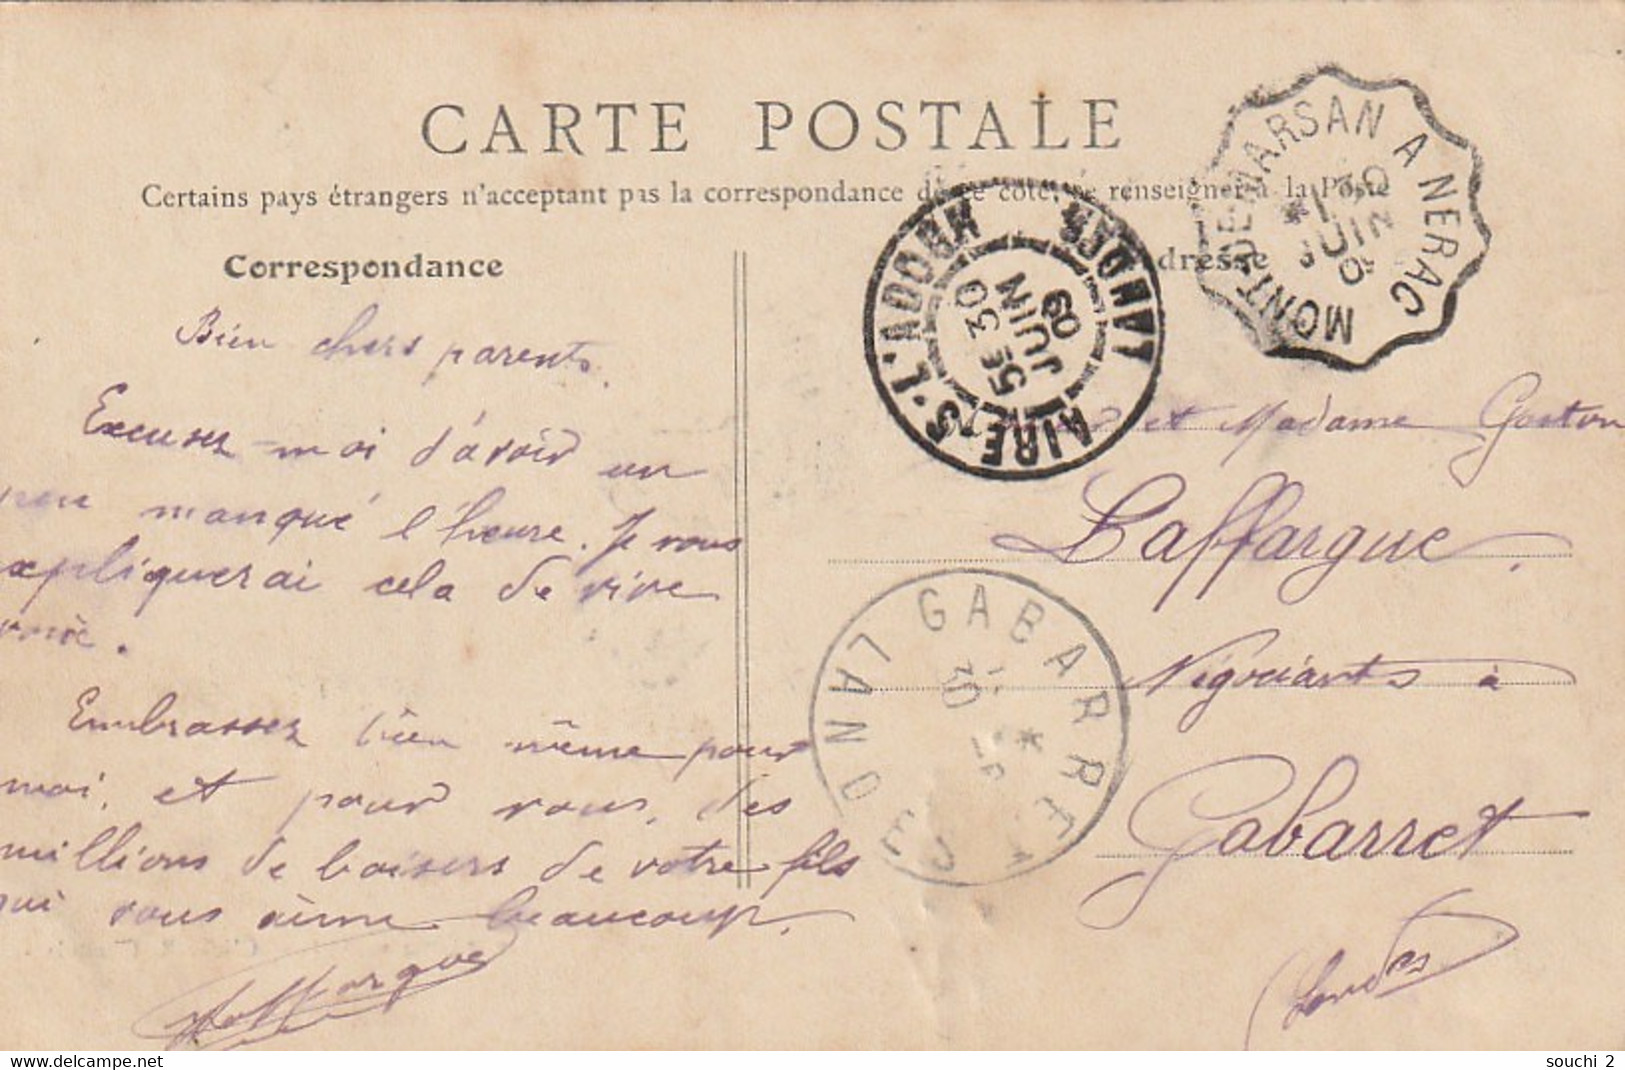 CARTE POSTALE
Certains pays étrangers n'acceptent pas la correspondance de ce côté, se renseigner à la Poste
Correspondance
Adresse
Bien chers parents.
Excusez-moi d'avoir un
peu manqué l'heure. Je vous
expliquerai cela de vive
voix.
Embrassez bien même pour
moi, et pour vous, des
millions de baisers de votre fils
qui vous aime beaucoup.
Laffargue
et Madame Gaston
Laffargue.
Négociants à
Gabarret
(Landes)
MONT-DE-MARSAN A NERAC
30
JUIN
09
AIRE-S-L'ADOUR LANDES
5E 30
JUIN
09
GABARRET
LANDES
30
www.delcampe.net
souchi 2